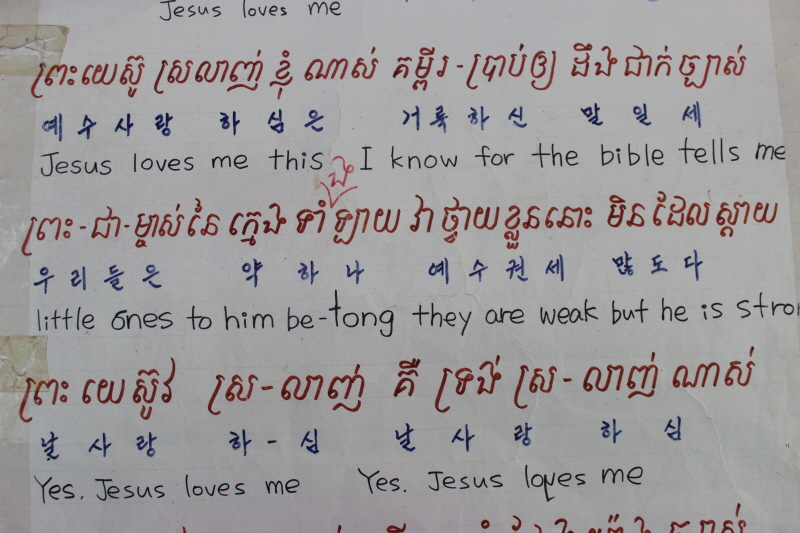 Jesus loves me
ព្រះយេស៊ូ ស្រលាញ់ ខ្ញុំ ណាស់ គម្ពីរ-ប្រាប់ឲ្យ ដឹង ជាក់ ច្បាស់
예수사랑 하심은 거룩하신 말일세
Jesus loves me this I know for the bible tells me
ង
ព្រះ-ជា-ម្ចាស់នៃ ក្មេង ទាំឡាយ វា ថ្វាយខ្លួននោះ មិន ដែលស្តាយ
우리들은 약하나 예수권세 많도다
little ones to him be-tong they are weak but he is stro
ព្រះ យេស៊ូវ ស្រ-លាញ់ គឺ ទ្រង់ ស្រ-លាញ់ ណាស់
날사랑 하-심 날사랑하심
Yes. Jesus loves me Yes. Jesus loves me